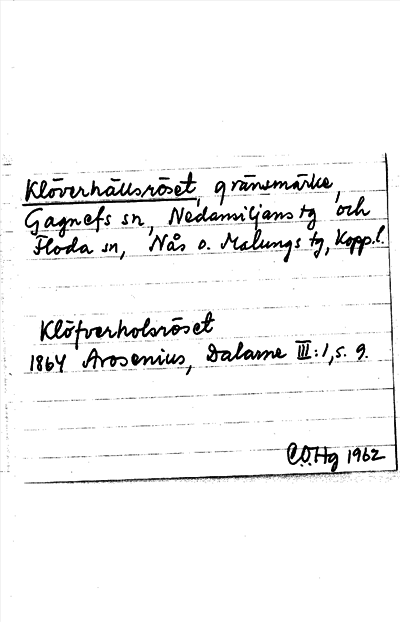 Klöverhällsröset, gränsmärke,
Gagnefs sn, Nedansiljans tg och
Floda sn, Nås o. Malungs tg, Kopp.l.
Klöfverholsröset
1864 Arosenius, Dalarne III:1, s. 9.
C.O.Hg 1962